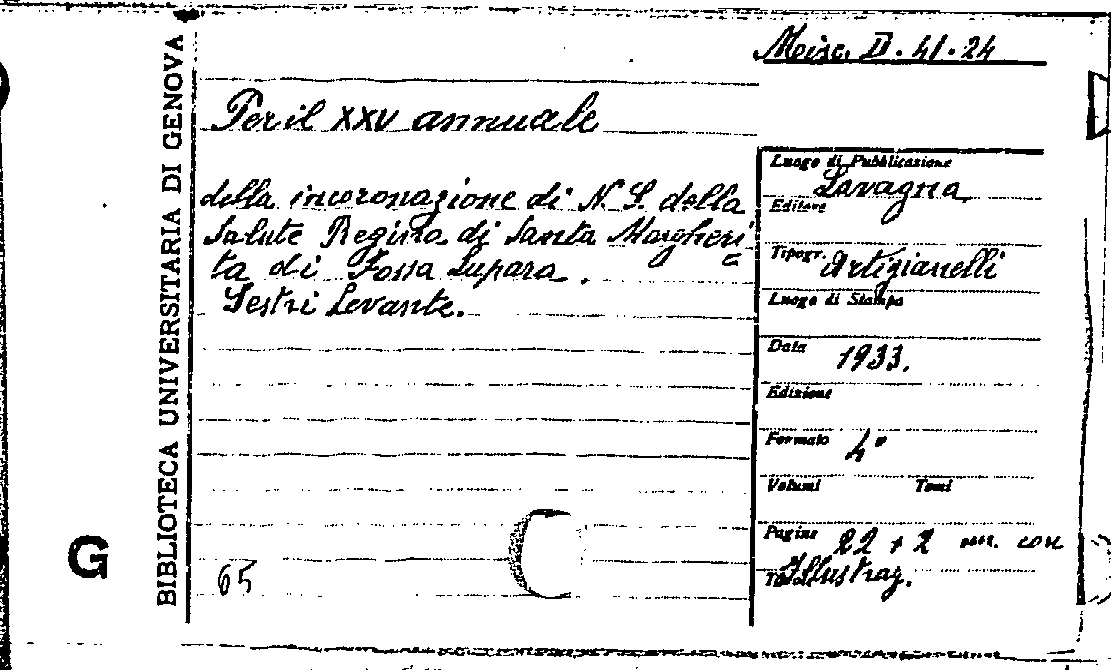 Misc. II. 41. 24
BIBLIOTECA UNIVERSITARIA DI GENOVA
Per il XXV annuale
della incoronazione di N. S. della
Salute Regina di Santa Margheri
ta di Fossa Lupara.
Sestri Levante.
65
G
Luogo di Pubblicazione
Lavagna
Editore
Tipogr. Artigianelli
Luogo di Stampa
Data 1933.
Edizione
Formato 4°
Volumi Tomi
Pagine 22 + 2 nn. con
Tavole Illustraz.